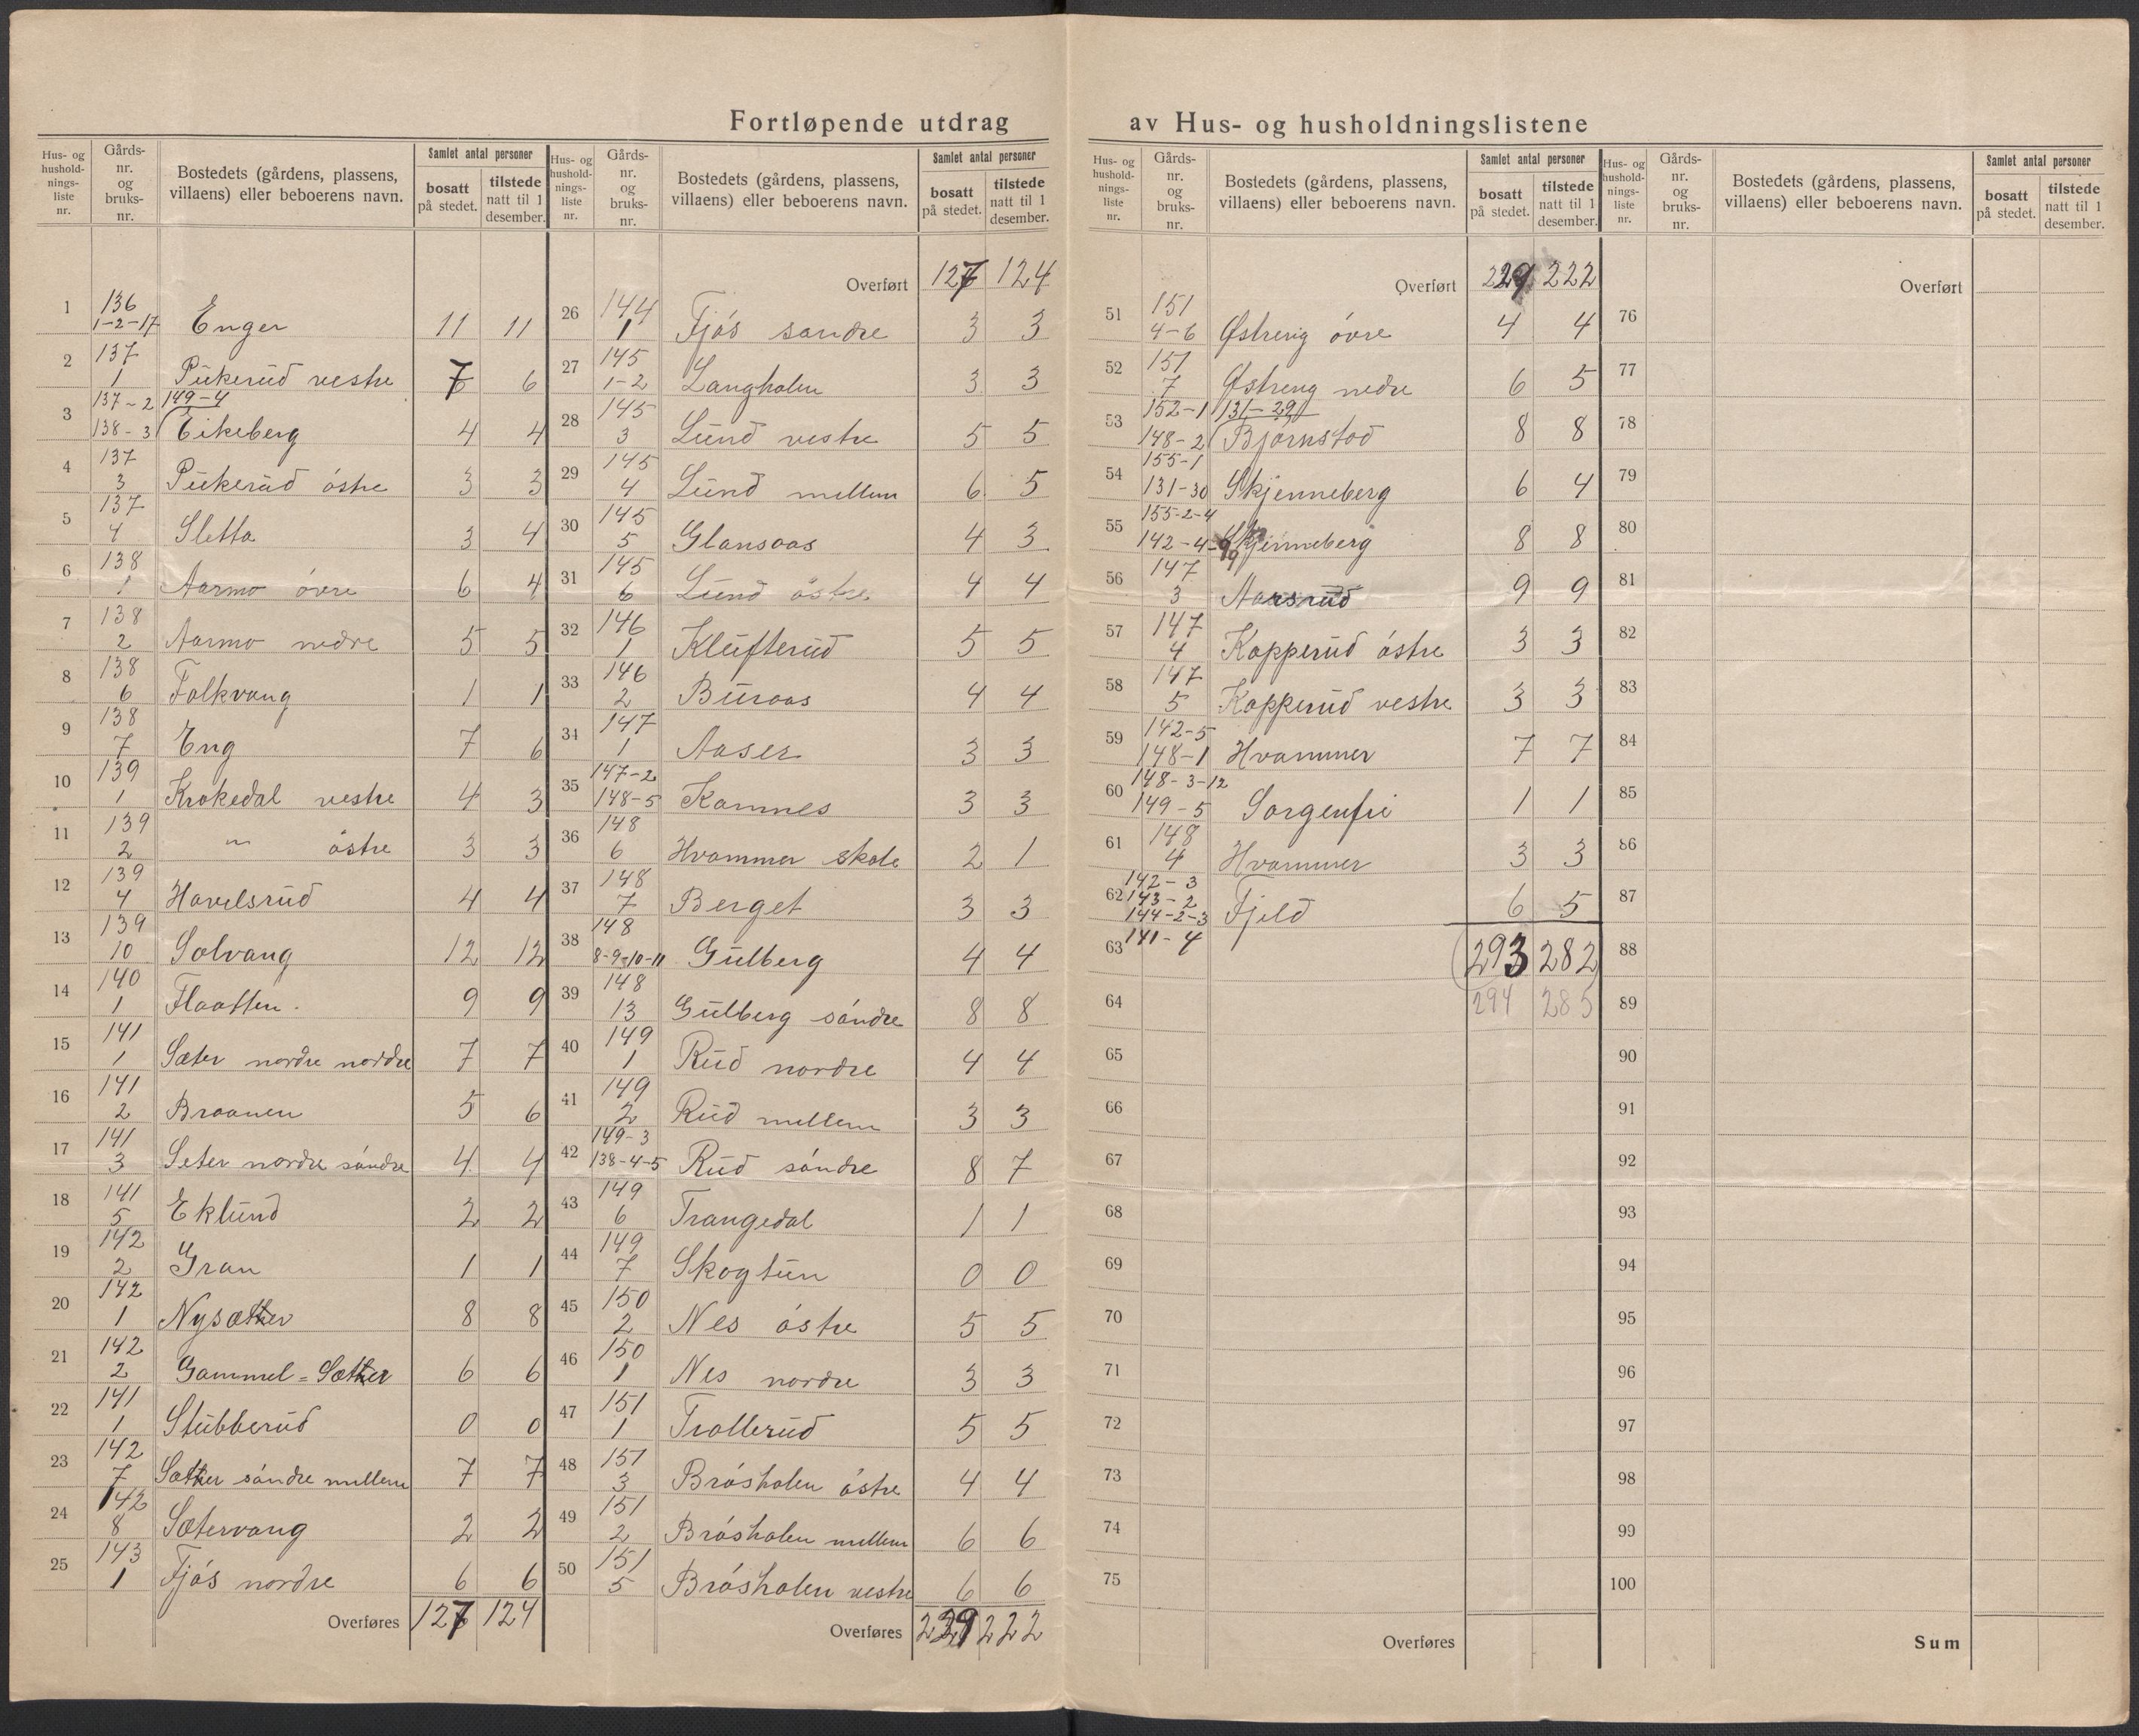 Fortløpende utdrag av Hus- og husholdningslistene
Hus- og hushold-nings-liste nr. | Gårds-nr. og bruks-nr. | Bostedets (gårdens, plassens, villaens) eller beboerens navn. | Samlet antal personer | bosatt på stedet. | tilstede natt til 1 desember.
1 | 136 1-2-17 | Enger | 11 | 11
2 | 137 1 | Pükerüd vestre | 7 | 6
3 | 137-2 149-4 138-3 | Eikeberg | 4 | 4
4 | 137 3 | Pükerüd östre | 3 | 3
5 | 137 4 | Sletta | 3 | 4
6 | 138 1 | Aarmo övre | 6 | 4
7 | 138 2 | Aarmo nedre | 5 | 5
8 | 138 6 | Folkvang | 1 | 1
9 | 138 7 | Eng | 7 | 6
10 | 139 1 | Krokedal vestre | 4 | 3
11 | 139 2 | " östre | 3 | 3
12 | 139 4 | Havelsrüd | 4 | 4
13 | 139 10 | Solvang | 12 | 12
14 | 140 1 | Flaatten. | 9 | 9
15 | 141 1 | Sæter nordre nordre | 7 | 7
16 | 141 2 | Braanen | 5 | 6
17 | 141 3 | Seter nordre söndre | 4 | 4
18 | 141 5 | Eklünd | 2 | 2
19 | 142 2 | Gran | 1 | 1
20 | 142 1 | Nysæther | 8 | 8
21 | 142 2 | Gammel=Sæther | 6 | 6
22 | 141 1 | Stübberüd | 0 | 0
23 | 142 7 | Sæther söndre mellem | 7 | 7
24 | 142 8 | Sætervang | 2 | 2
25 | 143 1 | Fjös nordre | 6 | 6
Overføres 127 124
Hus- og hushold-nings-liste nr. | Gårds-nr. og bruks-nr. | Bostedets (gårdens, plassens, villaens) eller beboerens navn. | Samlet antal personer | bosatt på stedet. | tilstede natt til 1 desember.
Overført 127 124
26 | 144 1 | Fjös søndre | 3 | 3
27 | 145 1-2 | Langholm | 3 | 3
28 | 145 3 | Lünd vestre | 5 | 5
29 | 145 4 | Lünd mellem | 6 | 5
30 | 145 5 | Glansaas | 4 | 3
31 | 145 6 | Lünd östre | 4 | 4
32 | 146 1 | Klüfterüd | 5 | 5
33 | 146 2 | Büraas | 4 | 4
34 | 147 1 | Aaser | 3 | 3
35 | 147-2 148-5 | Kamnes | 3 | 3
36 | 148 6 | Hvammer skole | 2 | 1
37 | 148 7 | Berget | 3 | 3
38 | 148 8-9-10-11 | Gülberg | 4 | 4
39 | 148 13 | Gülberg söndre | 8 | 8
40 | 149 1 | Rüd nordre | 4 | 4
41 | 149 2 | Rüd mellem | 3 | 3
42 | 149-3 138-4-5 | Rüd söndre | 8 | 7
43 | 149 6 | Trangedal | 1 | 1
44 | 149 7 | Skogtün | 0 | 0
45 | 150 2 | Nes östre | 5 | 5
46 | 150 1 | Nes nordre | 3 | 3
47 | 151 1 | Trollerüd | 5 | 5
48 | 151 3 | Brösholen östre | 4 | 4
49 | 151 2 | Brösholen mellem | 6 | 6
50 | 151 5 | Brösholen vestre | 6 | 6
Overføres 229 222
Hus- og hushold-nings-liste nr. | Gårds-nr. og bruks-nr. | Bostedets (gårdens, plassens, villaens) eller beboerens navn. | Samlet antal personer | bosatt på stedet. | tilstede natt til 1 desember.
Overført 229 222
51 | 151 4-6 | Østreng övre | 4 | 4
52 | 151 7 | Østreng nedre | 6 | 5
53 | 152-1 131-29 148-2 | Bjørnstad | 8 | 8
54 | 155-1 131-30 | Skjenneberg | 6 | 4
55 | 155-2-4 142-4-9 | Skjenneberg | 8 | 8
56 | 147 3 | Aarsrüd | 9 | 9
57 | 147 4 | Kopperüd östre | 3 | 3
58 | 147 5 | Kopperüd vestre | 3 | 3
59 | 142-5 148-1 | Hvammer | 7 | 7
60 | 148-3-12 149-5 | Sorgenfri | 1 | 1
61 | 148 4 | Hvammer | 3 | 3
62 | 142-3 143-2 144-2-3 | Fjeld | 6 | 5
63 | 141-4 | 293 | 282
64 | 294 | 285
65
66
67
68
69
70
71
72
73
74
75
Overføres
Hus- og hushold-nings-liste nr. | Gårds-nr. og bruks-nr. | Bostedets (gårdens, plassens, villaens) eller beboerens navn. | Samlet antal personer | bosatt på stedet. | tilstede natt til 1 desember.
Overført
76
77
78
79
80
81
82
83
84
85
86
87
88
89
90
91
92
93
94
95
96
97
98
99
100
Sum